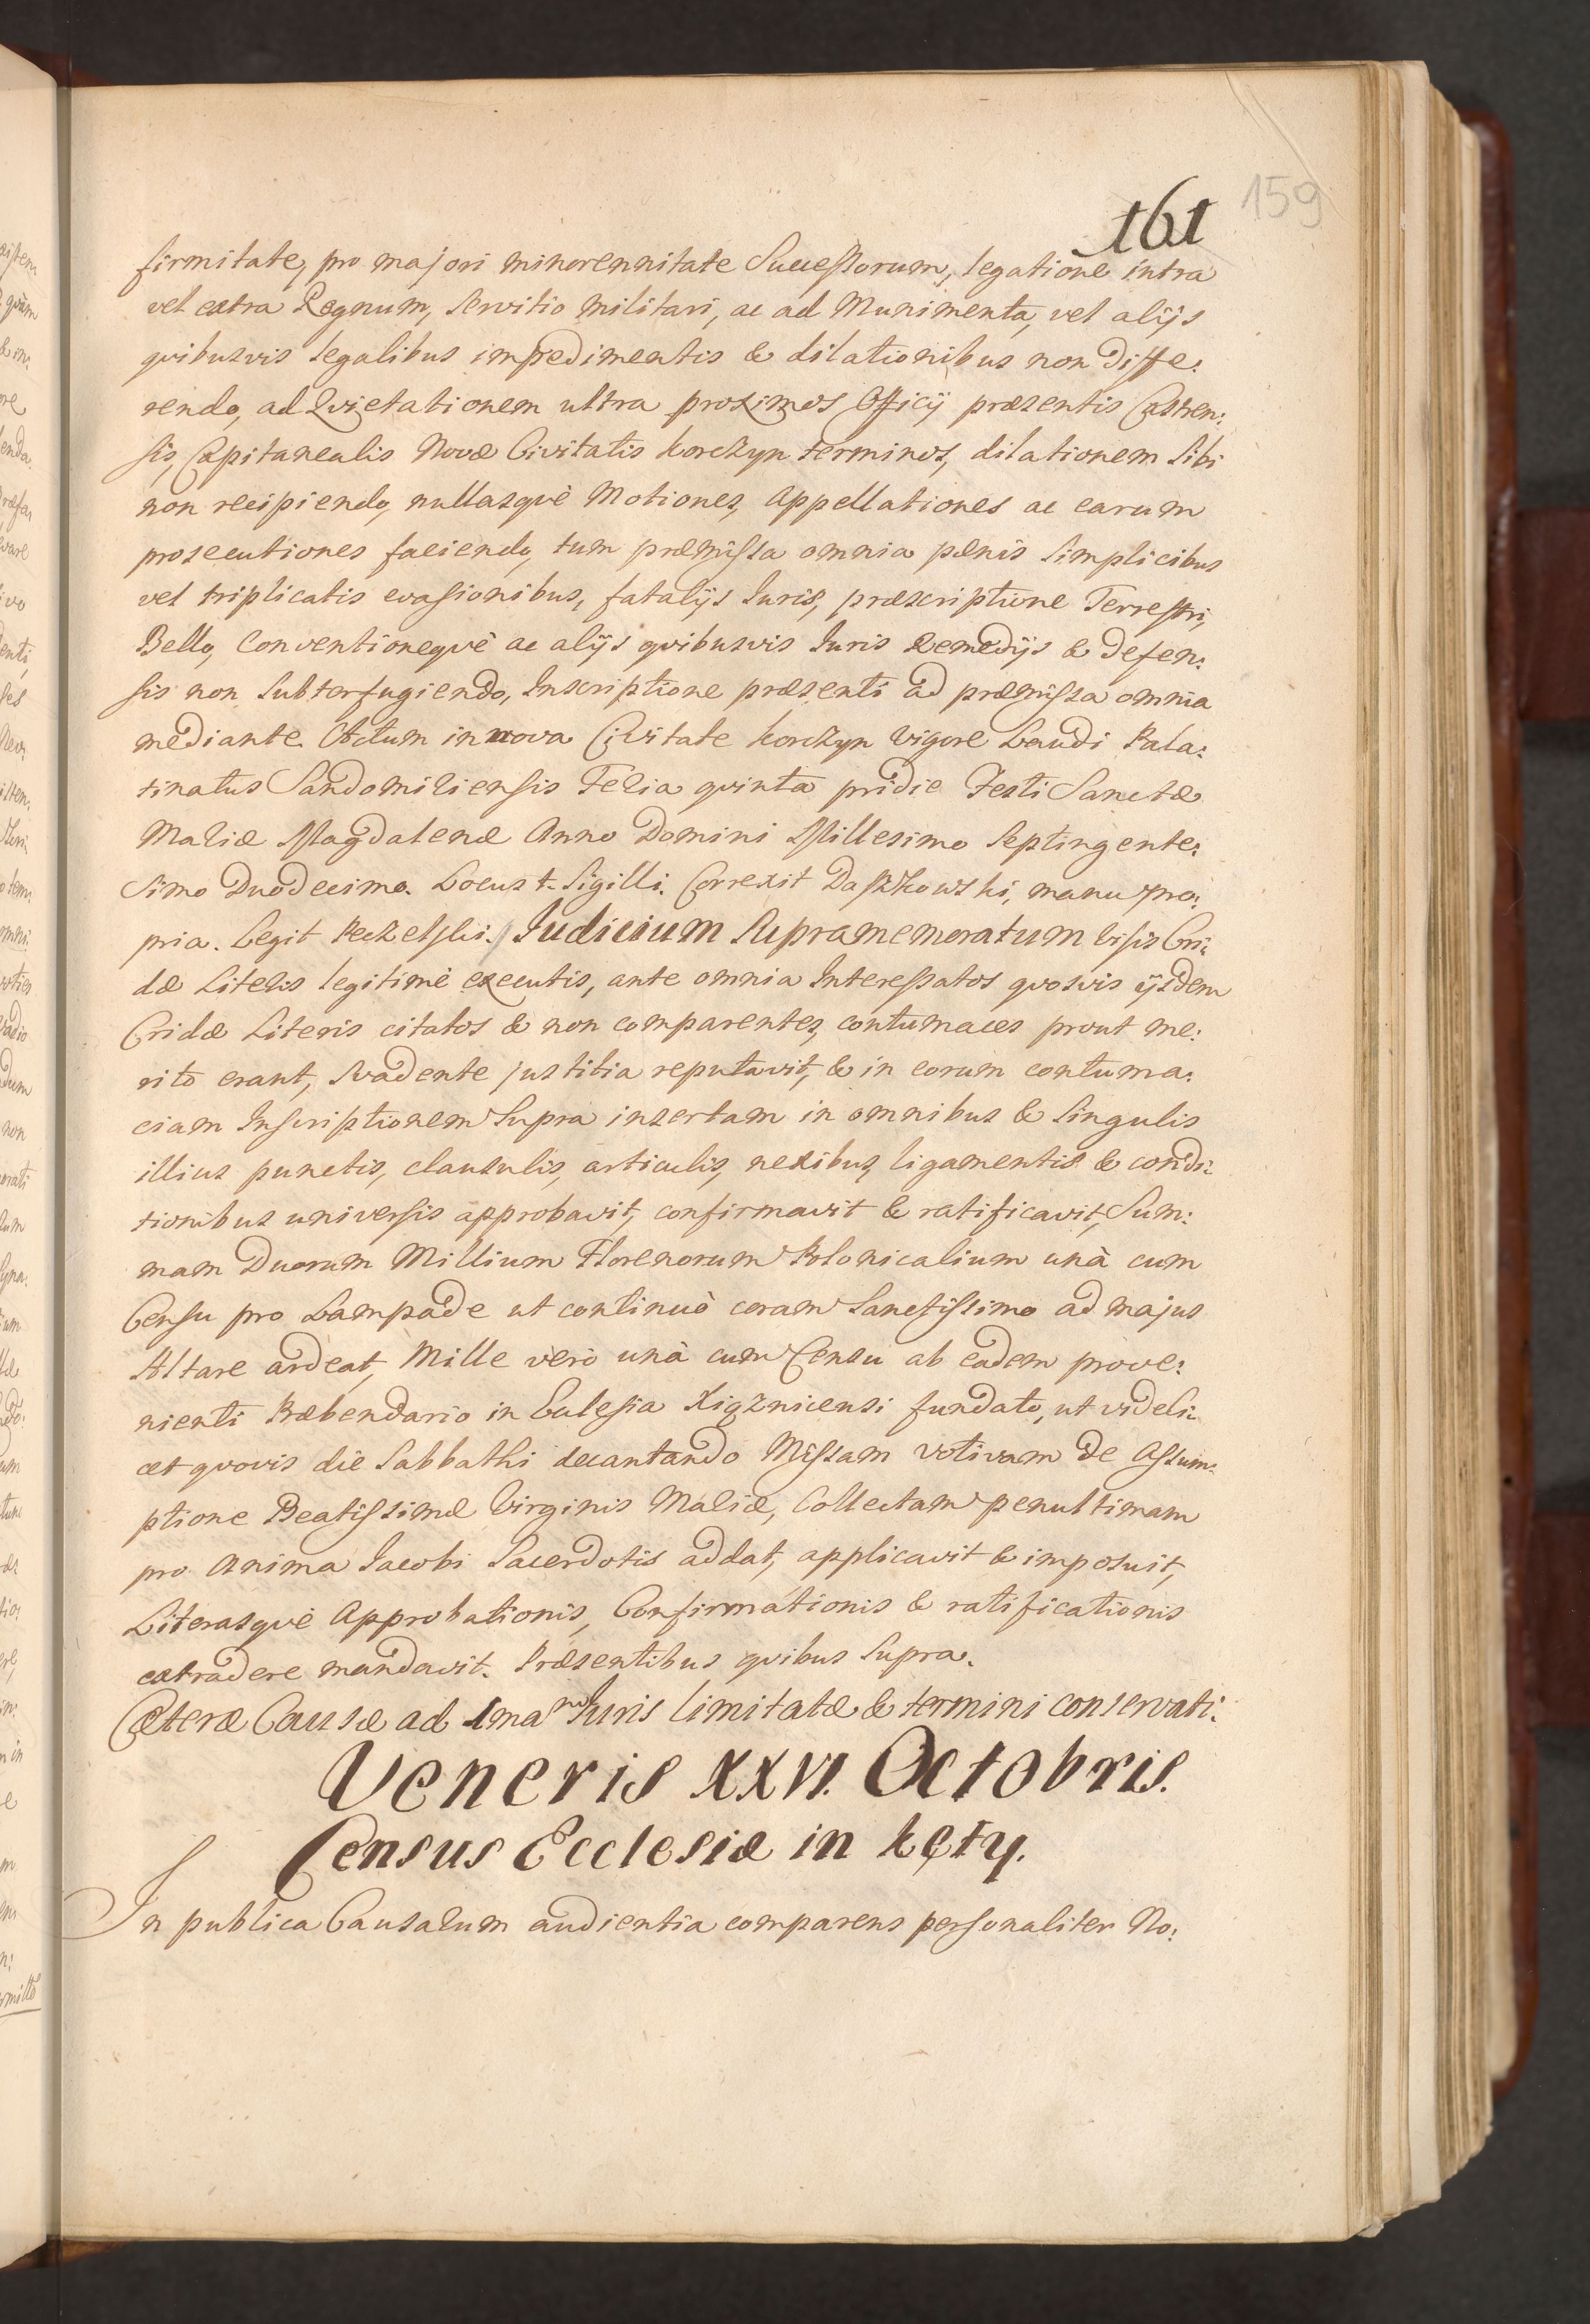 161
159
firmitate, pro majori minorennitate Successorum, legatione intra
vel extra Regnum, servitio militari, ac ad Munimenta, vel alijs
qvibusvis legalibus impedimentis & dilationibus non diffe:
rendo, ad Qvietationem ultra proximos Officij præsentis Castren:
sis, Capitanealis Novæ Civitatis Korczyn terminos, dilationem sibi
non recipiendo, nullasqvè Motiones, Appellationes ac earum
prosecutiones faciendo, tum præmissa omnia pœnis simplicibus
vel triplicatis evasionibus, fatalijs Juris, præscriptione Terrestri,
Bello, Conventioneqvè ac alijs qvibusvis Juris Remedijs & defen:
sis non subterfugiendo, Inscriptione præsenti ad præmissa omnia
mediante. Actum in nova Civitate Korczyn vigore Laudi Pala:
tinatus Sandomiriensis Feria qvinta pridie Festi Sanctæ
Mariæ Magdalenæ Anno Domini Millesimo Septingente:
simo Duodecimo. Locus +. Sigilli. Correxit Daszkowski, manu pro:
pria. Legit Peczelski. Judicium supramemoratum visis Cri:
dæ Literis legitimè executis, ante omnia Interessatos qvosvis ijsdem
Cridæ Literis citatos & non comparentes, contumaces prout me:
rito erant, svadente justitia reputavit, & in eorum contuma:
ciam Inscriptionem supra insertam in omnibus & singulis
illius punctis, clausulis, articulis, nexibus, ligamentis & condi:
tionibus universis approbavit, confirmavit & ratificavit, Sum:
mam Duorum Millium Florenorum Polonicalium unà cum
Censu pro Lampade ut continuò coram Sanctissimo ad majus
Altare ardeat, Mille verò unà cum Censu ab eadem prove:
nienti Præbendario in Eclesia Xiąznicensi fundato, ut videli:
cet qvovis die Sabbathi decantando Missam votivam de Assum:
ptione Beatissimæ Virginis Mariæ, Collectam penultimam
pro Anima Jacobi Sacerdotis addat, applicavit & imposuit,
Literasqvè Approbationis, Confirmationis & ratificationis
extradere mandavit. Præsentibus qvibus supra.
Cæteræ Causæ ad 1mam Juris limitatæ & termini conservati.
Veneris XXVI. Octobris.
Census Ecclesiæ in Kęty.
In publica Causarum audientia comparens personaliter No: